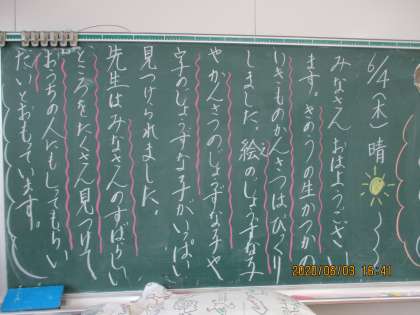 6/4（木）晴
みなさん おはようござい
ます。きのうの生かつかの
いきものかんさつはびっくり
しました。絵のじょうずな子
やかんさつのじょうずな子や、
字のじょうずな子がいっぱい
見つけられました。
先生はみなさんのすばらしい
ところをたくさん見つけて
おうちの人にもしてもらい
たいとおもっています。
2020/06/03 16:41